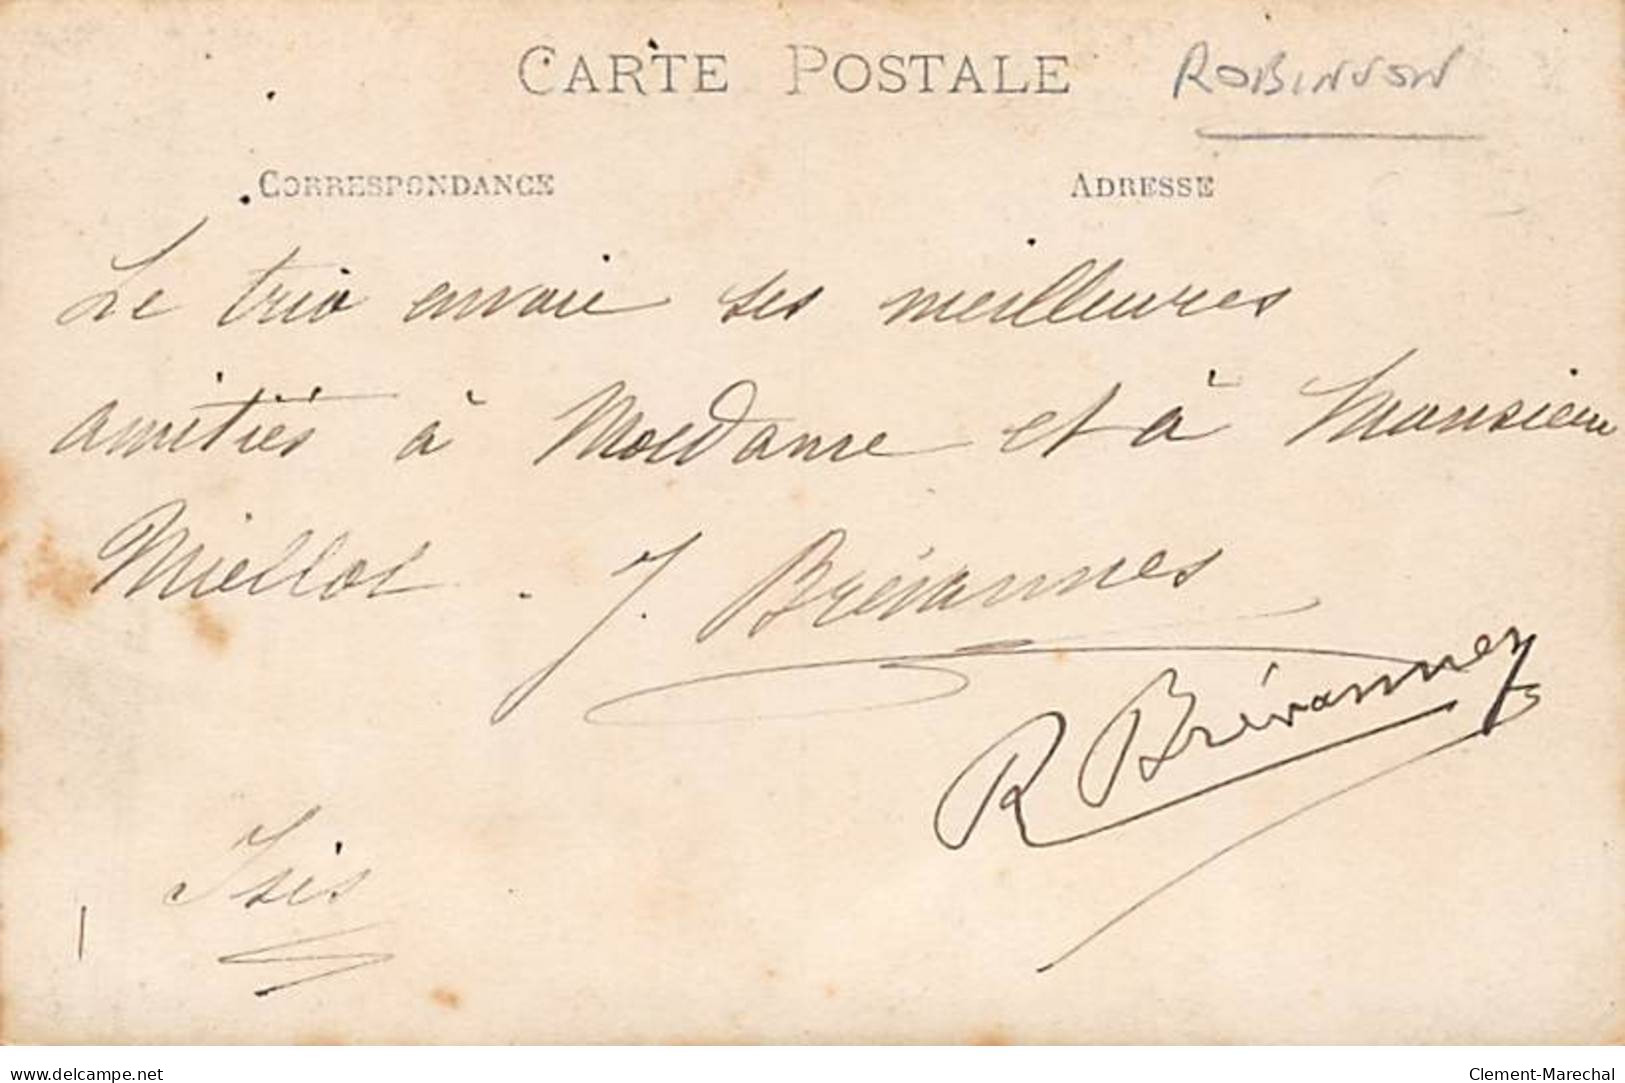 CARTE POSTALE
ROBINSON
CORRESPONDANCE
ADRESSE
Le trio envoie ses meilleures
amitiés à Madame et à Monsieur
Miellot. J. Brévannes
R Brévannes
Isis
www.delcampe.net
Clement-Marechal